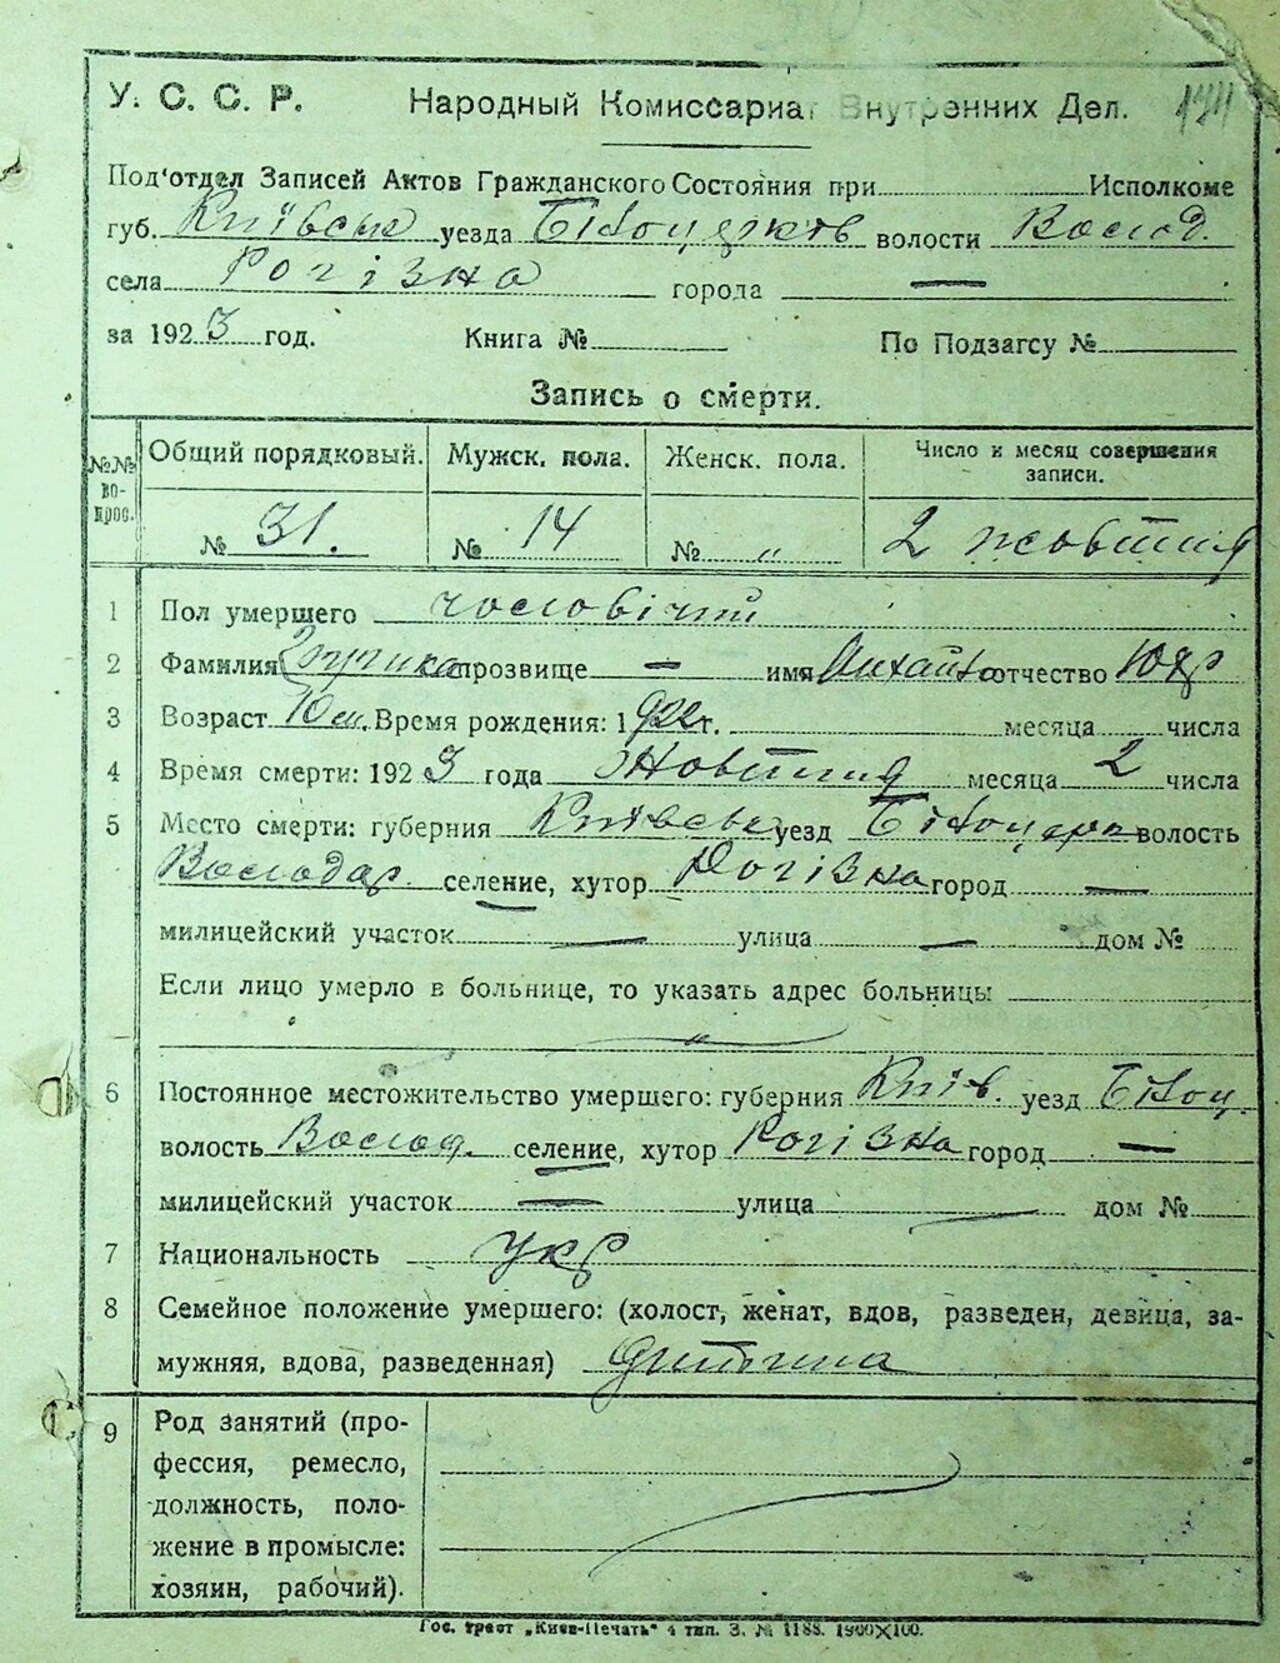 У. С. С. Р. Народный Комиссариат Внутренних Дел.
Под'отдел Записей Актов Гражданского Состояния при Исполкоме
губ. Київськ уезда Білоцерков волости Волод.
села Рогізна города —
за 1923 год. Книга № По Подзагсу №
Запись о смерти.
№№ вопрос. Общий порядковый. Мужск. пола. Женск. пола. Число и месяц совершения записи.
№ 31. № 14 № „ 2 жовтня
1 Пол умершего чоловічий
2 Фамилия прозвище — имя Михайло отчество
3 Возраст 10 м. Время рождения: 1922 г. месяца числа
4 Время смерти: 1923 года Жовтня месяца 2 числа
5 Место смерти: губерния Київськ уезд Білоцерк волость
Володар. селение, хутор Рогізна город —
милицейский участок — улица — дом №
Если лицо умерло в больнице, то указать адрес больницы
„
6 Постоянное местожительство умершего: губерния Київ. уезд Білоц.
волость Волод. селение, хутор Рогізна город —
милицейский участок — улица — дом №
7 Национальность укр
8 Семейное положение умершего: (холост, женат, вдов, разведен, девица, за-
мужняя, вдова, разведенная) дитина
9 Род занятий (про-
фессия, ремесло,
должность, поло-
жение в промысле:
хозяин, рабочий).
Гос. трест „Киев-Печать" 4 тип. З. № 1188. 1900×100.